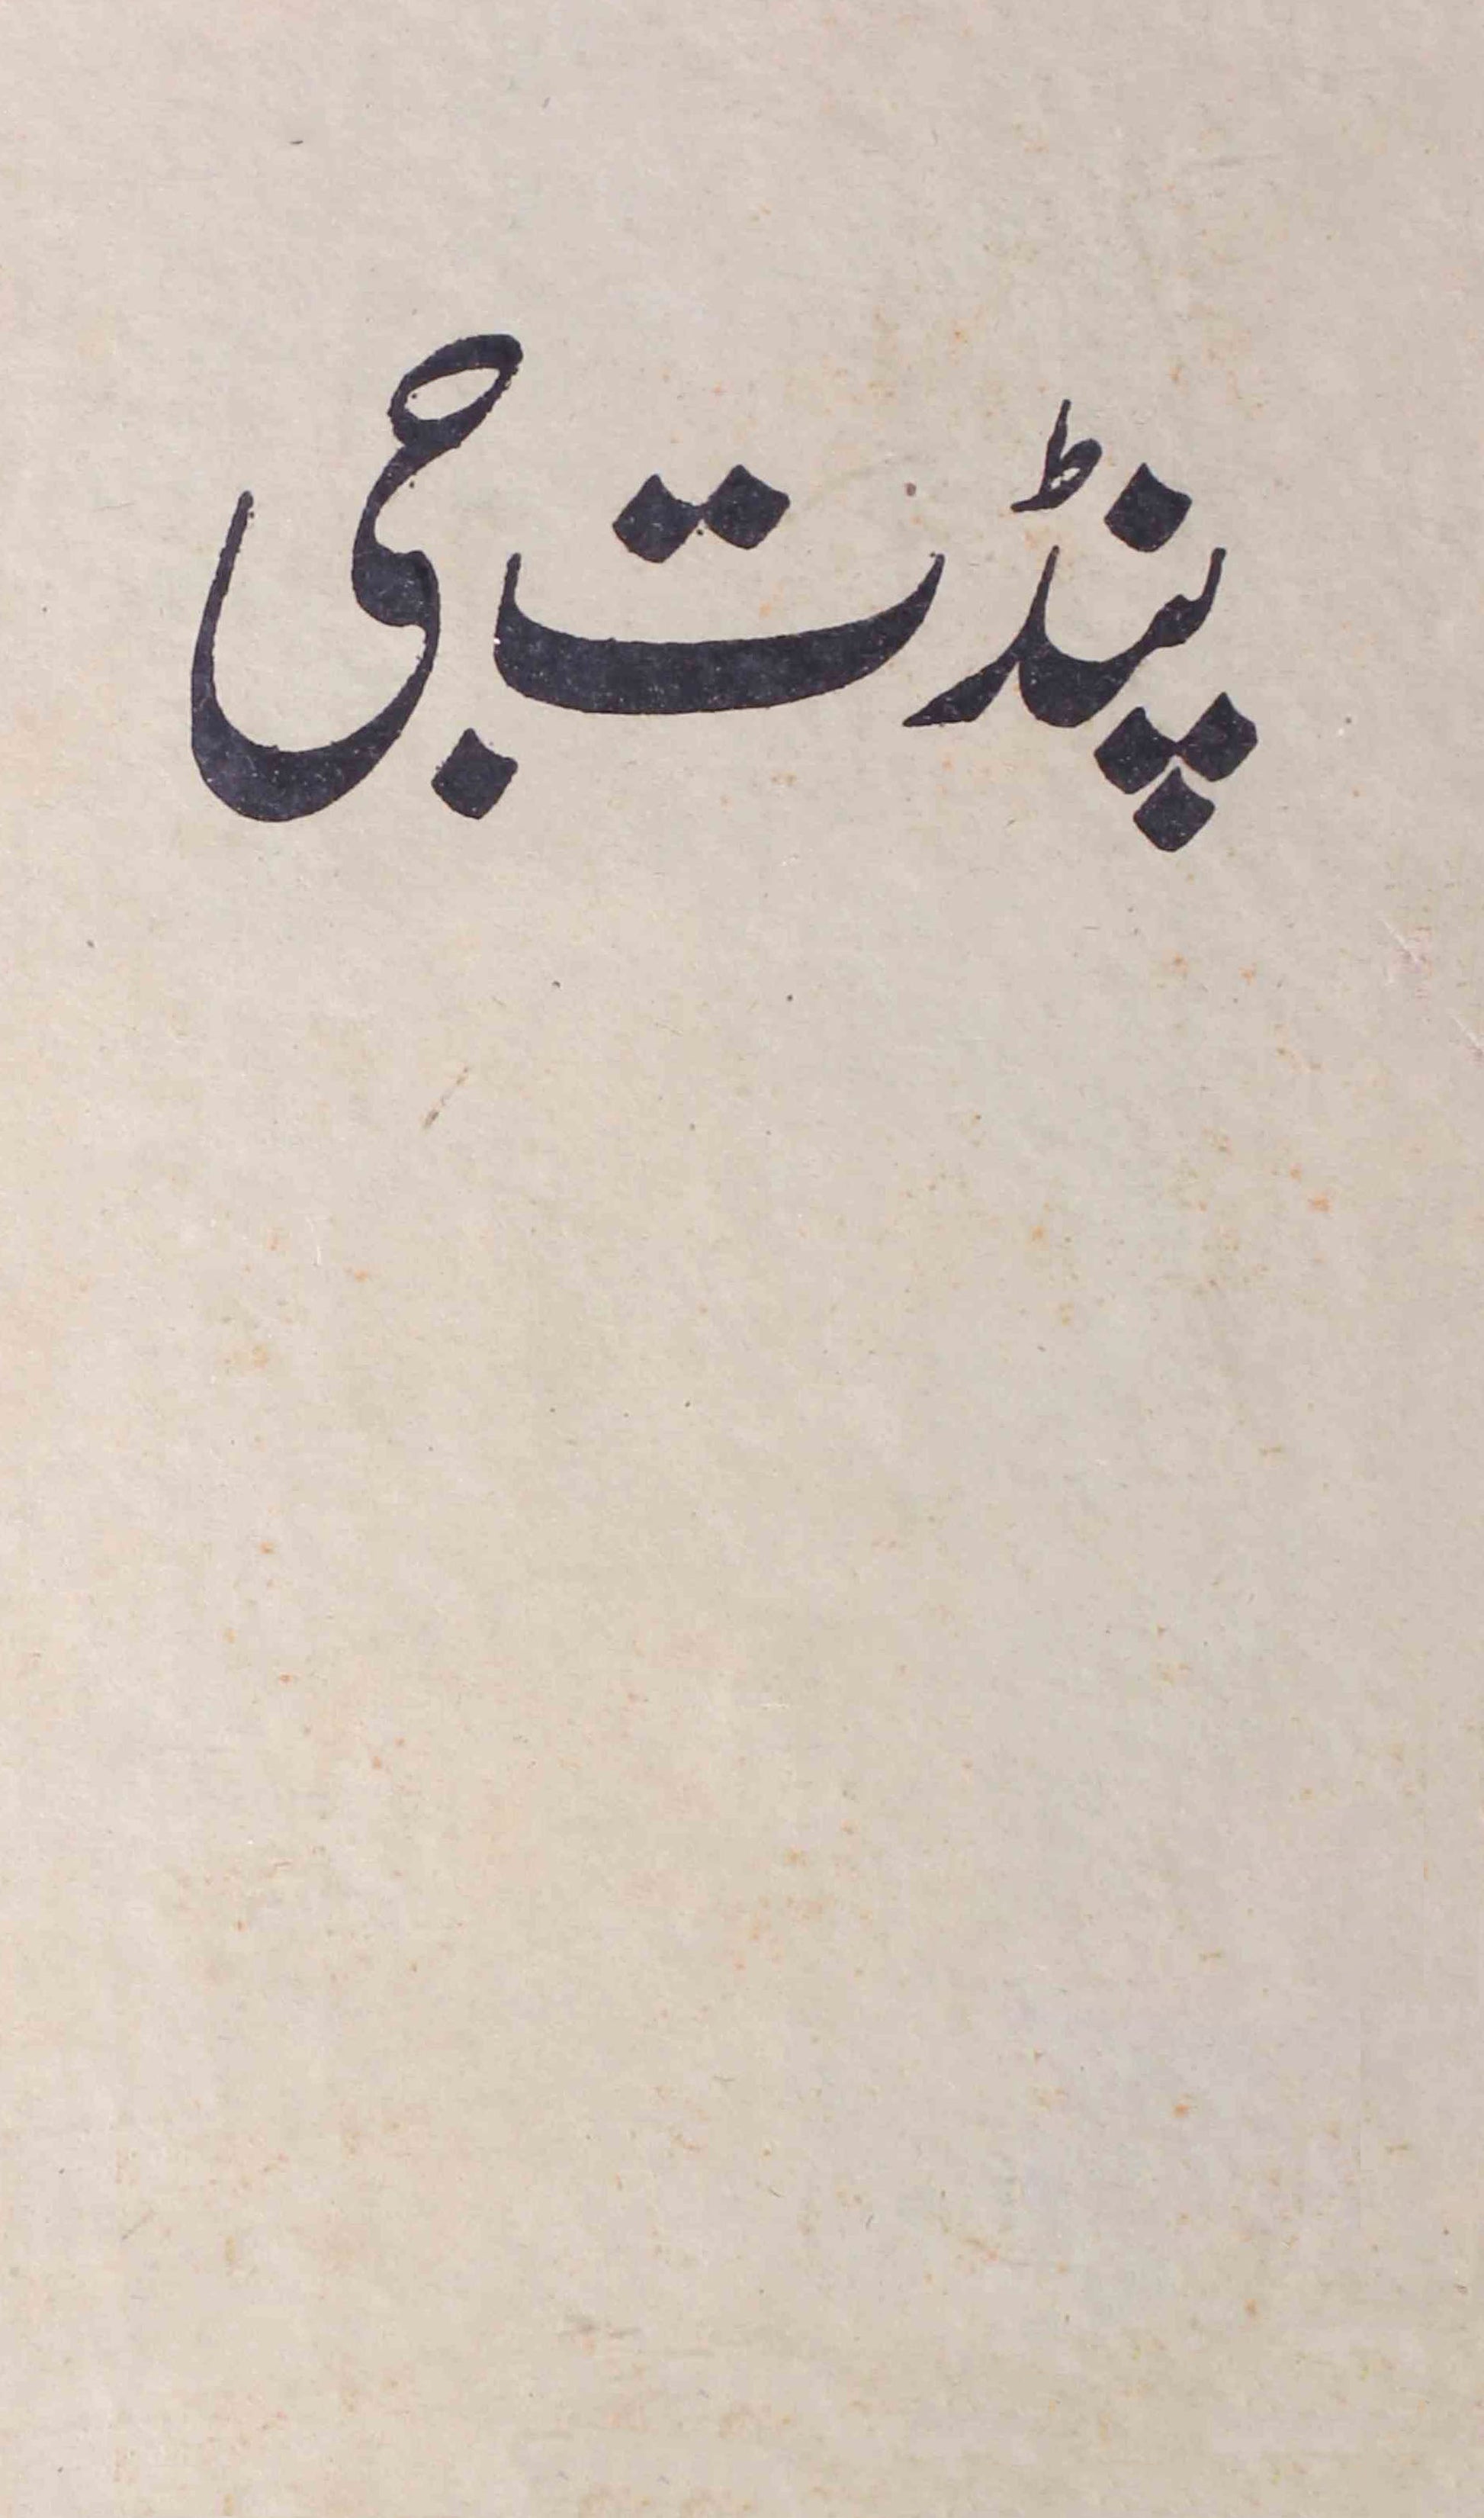 پنڈت جی